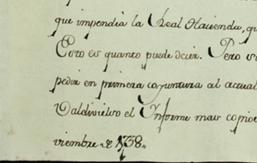 que impendia la Real Hacienda, q
Esto es quanto puede decir. Pero
pedir en primera coyuntura al actual
Valdivielso el Informe mas copio
viembre de 1738.